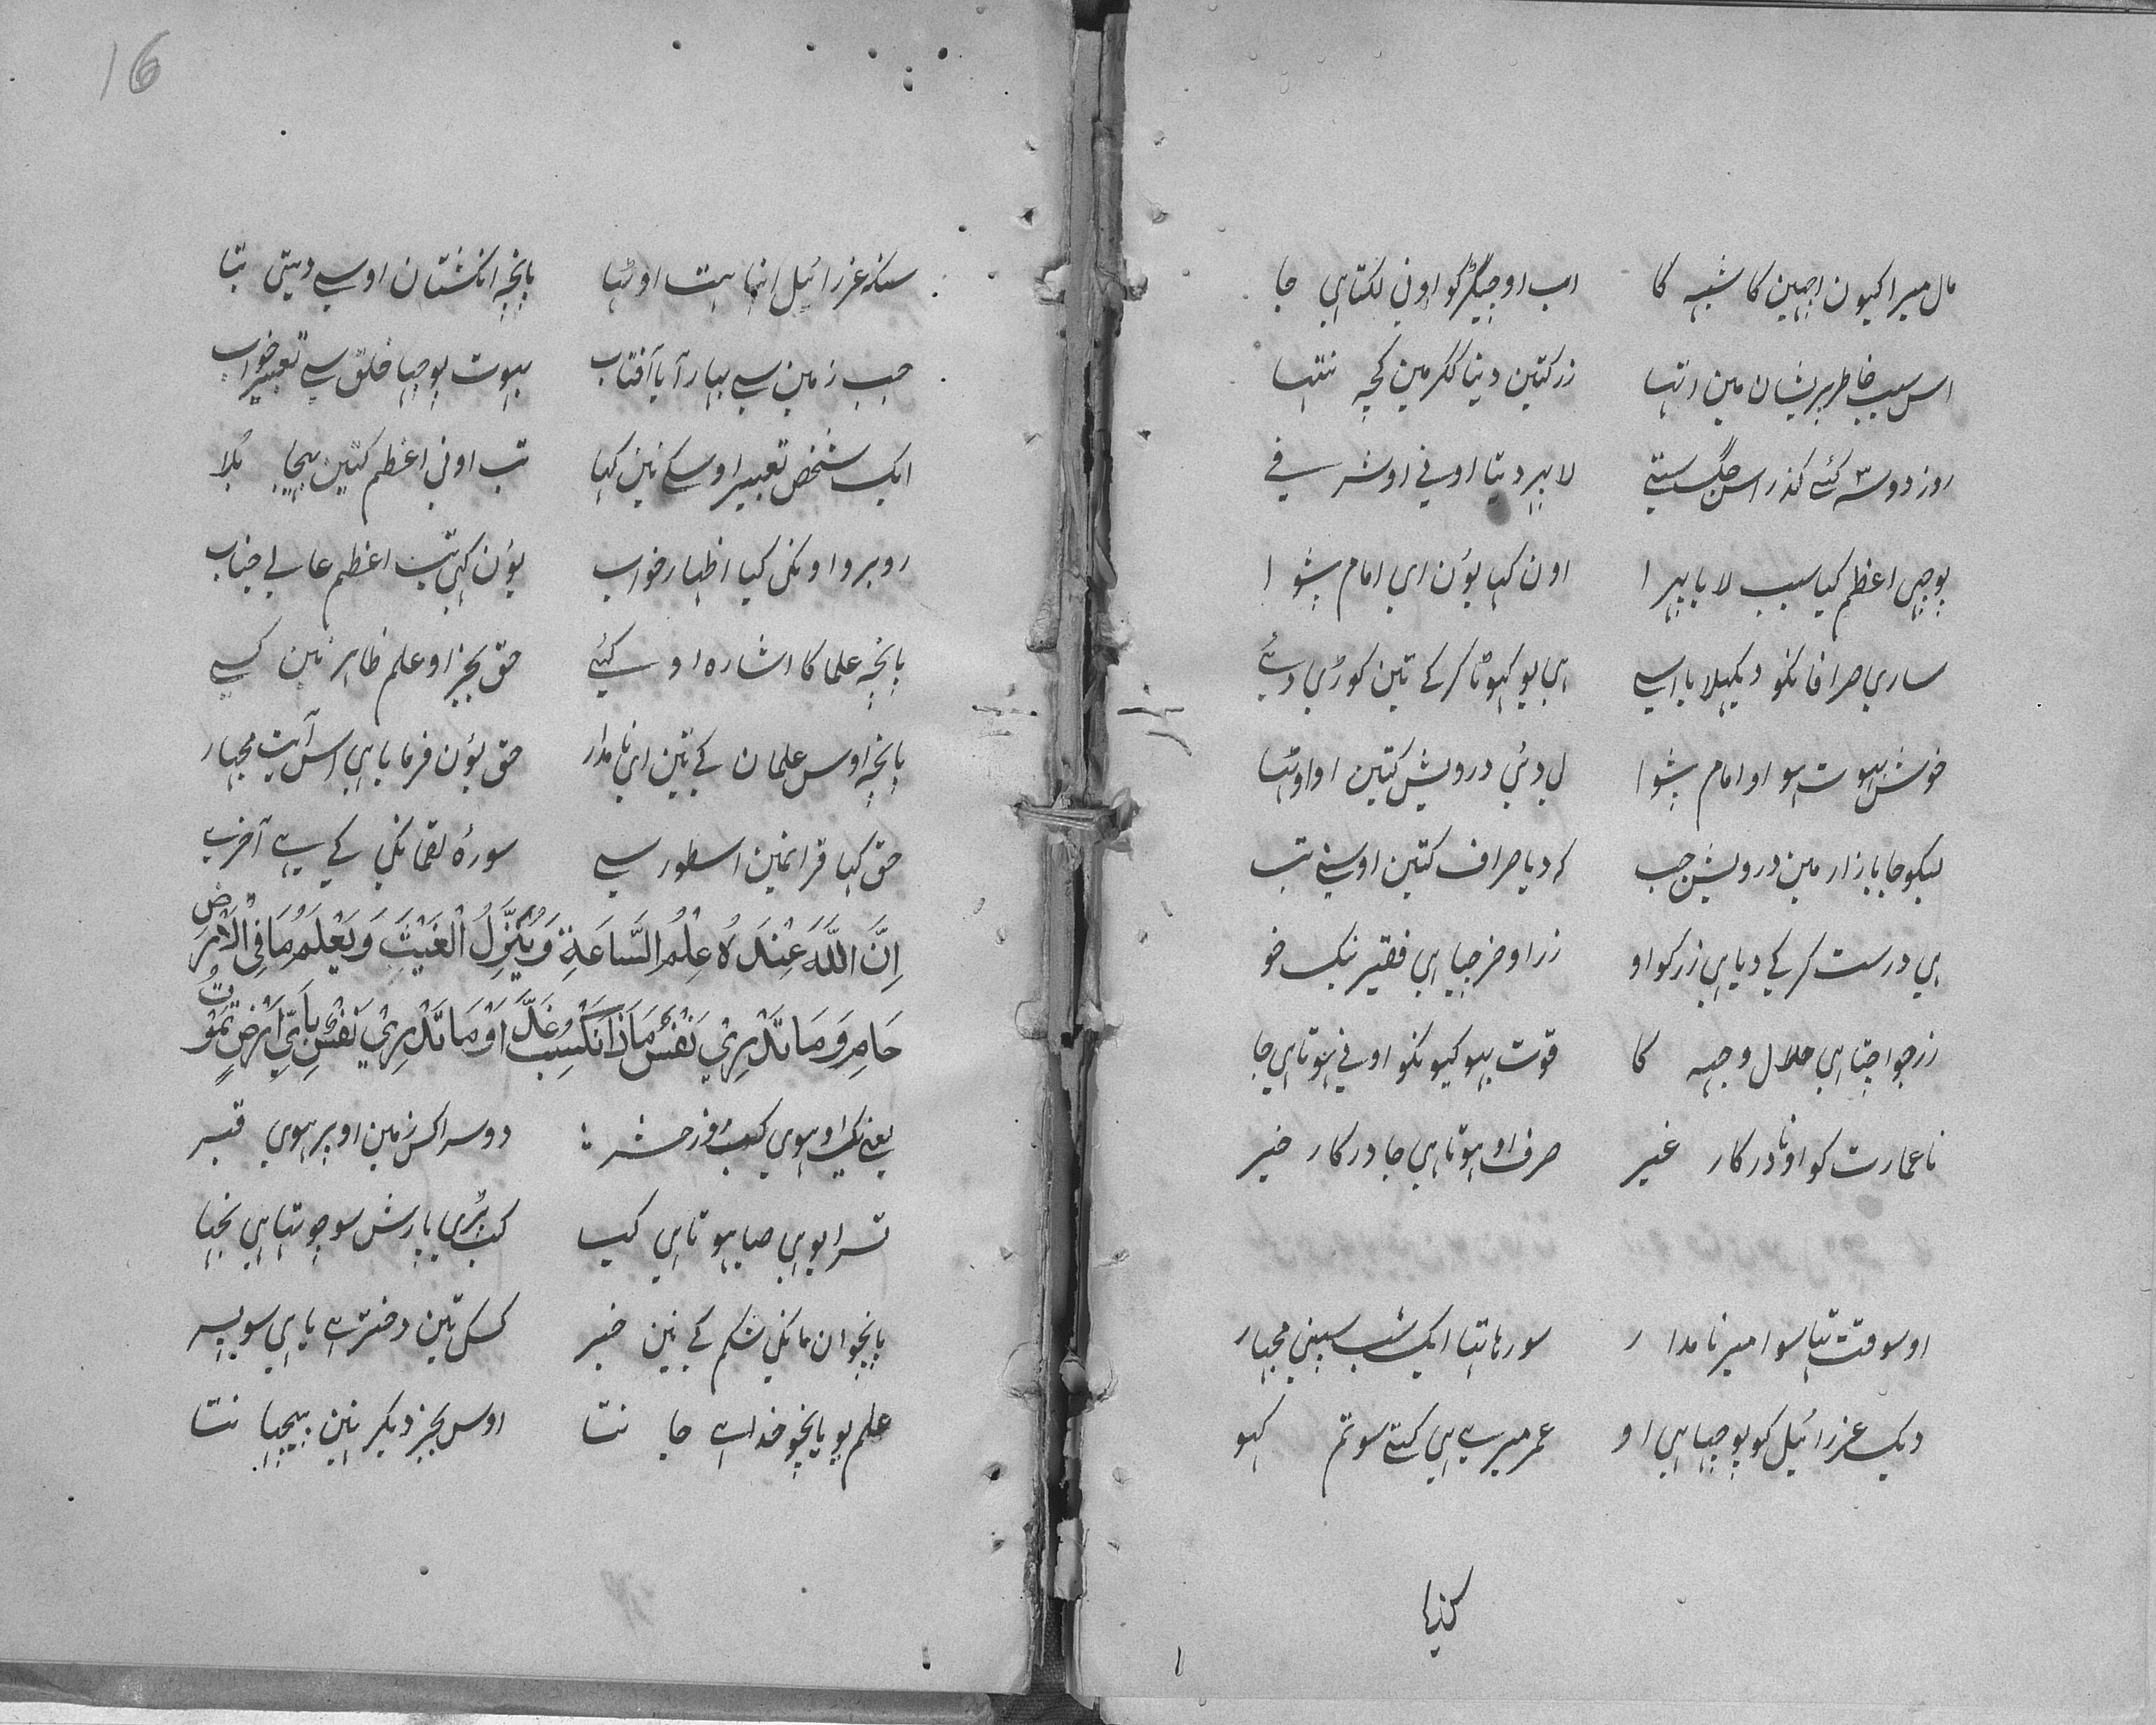 مال میرا کیون اچھین کا شبہہ کا اب او جیگڑ کو اونی لکتا ہی جا
اس سبب خاطر پریشان مین اتہا زر کتین دینا لکر مین کچہ نتہا
روز دو سہ گئے گذر اس جگ ستے لا بہر دیتا اونے اوشرفے
پوچہی اعظم کیا سبب لایا بہرا اون کہا یون ای امام پیشوا
ساری صرافانکو دیکہلایا اسے ہی یو کہوٹا کر کے تین کوڑی دئے
خوش بہوت ہوا و امام پیشوا لی دئی درویش کتین او اوٹہا
لیکو جا بازار مین درویش جب کہ دیا صراف کتین اوسنے تب
ہی درست کر کے دیا ہی زر کو او زر او خرچیا ہی فقیر نیک خو
زر جو اچتا ہی حلال وجہہ کا قوت ہیو کیونکو اونے ہوتا ہی جا
نا عمارت کو او نا درکار غیر صرف او ہوتا ہی جا درکار خیر
اوسوقت تہا سو امیر نامدار سو رہا تہا ایک شب سپنی مجہار
دیک عزرائیل کو پوچہا ہی او عمر میرے ہی کتے سو تم کہو
کنیا
16
سنکہ عزرائیل اپنا ہت اوٹہا پانچہ انکشتان اوسے دیتی بتا
جب زمین سے بہار آیا آفتاب بہوت پوچہا خلق سے تعبیر خواب
ایک شخص تعبیر اوسکے نین کہا تب اونی اعظم کتین بیجا بلا
روبرو اونکی کیا اظہار خواب یون کہی تب اعظم عالی جناب
پانچہ علما کا اشارہ او کئے حق بجز او علم ظاہر نین کسے
پانچہ اوس علمان کے تین ای نامدار حق یون فرمایا ہی اس آیت مجہار
حق کہا قرانمین اسطور سے سورۂ لقمانکی کے ہے آخر ہے
اِنَّ اللّٰهَ عِنْدَهُ عِلْمُ السَّاعَةِ وَيُنَزِّلُ الْغَيْثَ وَيَعْلَمُ مَا فِي الْاَرْضِ
حَامِ وَمَا تَدْرِيْ نَفْسٌ مَاذَا تَكْسِبُ غَدًا وَمَا تَدْرِيْ نَفْسٌ بِاَيِّ اَرْضٍ تَمُوْتُ
یعنے یک او ہوی کب روز حشر دوسرا کس زمین اوپر ہوی قبر
تسرا یو ہی صبا ہوتا ہی کیا کب پڑی بارش سو جو تہا ہی بجہا
پانچوان مانکی شکم کے نین خبر کسکے تین دختر ہے یا ہی سو پسر
علم یو پانچو خدا ہے جانتا اوس بجز دیگر نین پیچہانتا